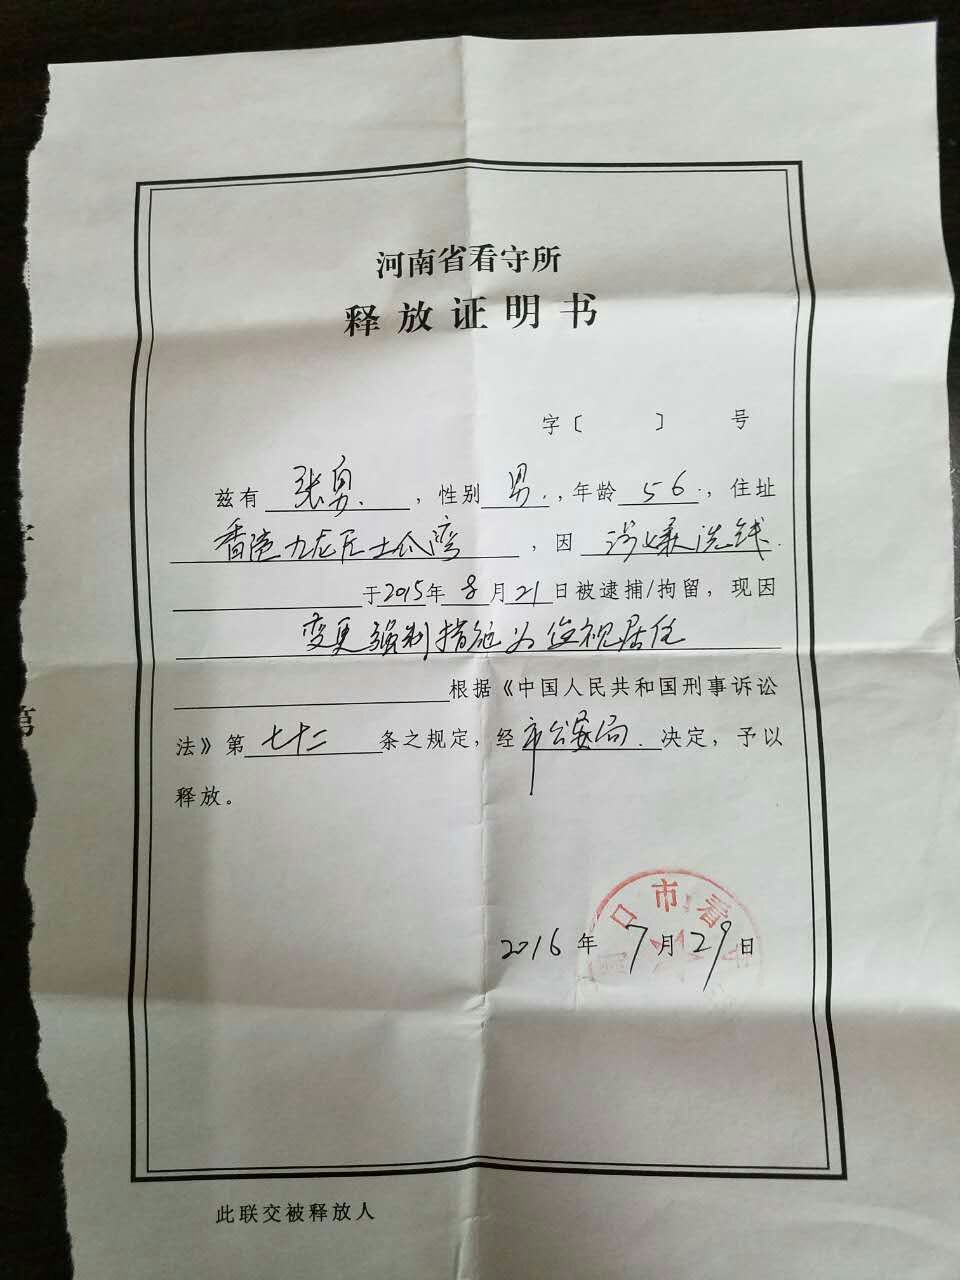 河南省看守所
释放证明书
字〔 〕 号
兹有 张勇. ，性别 男. ，年龄 56. ，住址
香港九龙区土瓜湾 ，因 涉嫌洗钱.
于2015年8月21日被逮捕/拘留，现因
变更强制措施为监视居住
根据《中国人民共和国刑事诉讼
法》第 七十二 条之规定，经 市公安局. 决定，予以
释放。
口市看守
2016年7月29日
此联交被释放人
字
第